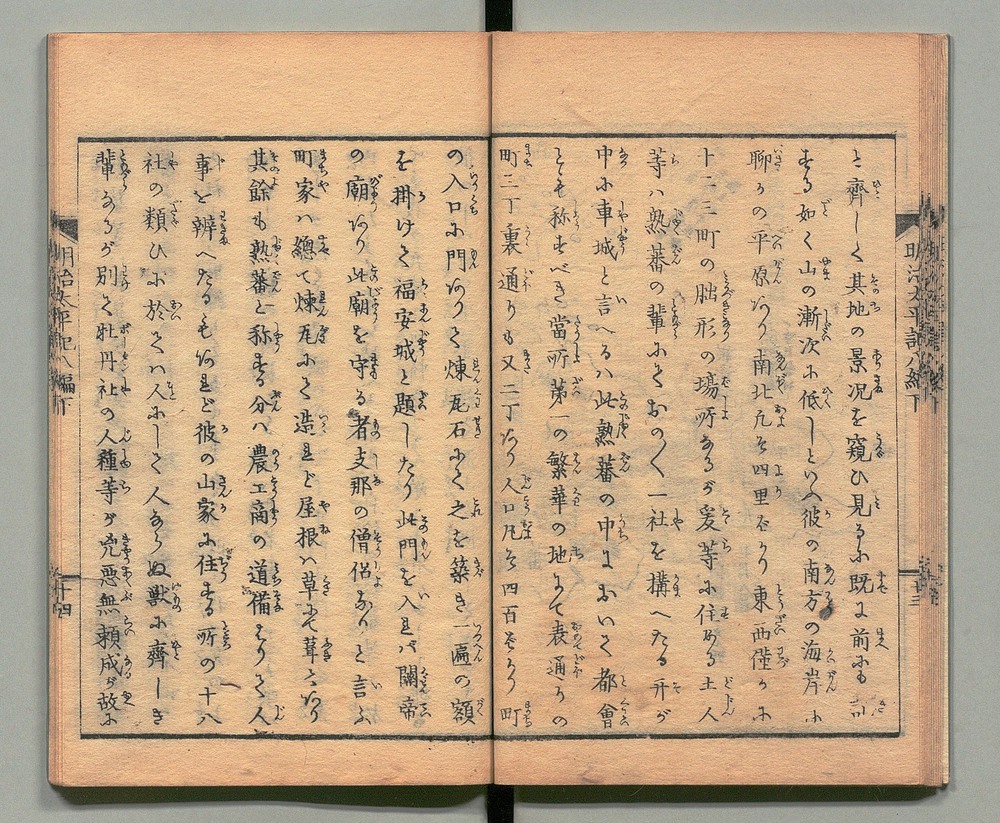 と齊しく其地の景况を窺ひ見るに既に前にも記
する如く山の漸次に低しといへ彼の南方の海岸に
聊かの平原あり南北凡そ四里ばかり東西僅かに
十二三町の朏形の塲所あるが爰等に住める土人
等ハ熟蕃の輩にておの〱一社を構へたる开が
中に車城と言へるハ此熟蕃の中において都會
とも称すべき當所第一の繁華の地にて表通りの
町三丁裏通りも又二丁あり人口凡そ四百ばかり町
の入口に門ありて煉瓦石にて之を築き一遍の額
を掛けて福安城と題したり此門を入れバ關帝
の廟あり此廟を守る者支那の僧侶なりと言ふ
町家ハ總て煉瓦にて造れど屋根ハ草にて葺るあり
其餘も熟蕃と称する分ハ農工商の道備はりて人
事を辨へたるもあれど彼の山家に住する所の十八
社の類ひに於てハ人にして人ならぬ獸に齊しき
輩なるが別て牡丹社の人種等が兇悪無頼成が故に
明治太平記八編下
十三
明治太平記八編下
十四